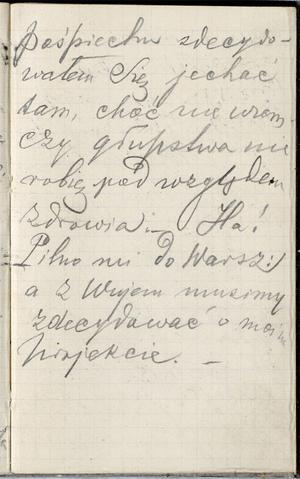 pośpiechu zdecydo-
wałem się jechać
tam, choć nie wiem
czy głupstwa nie
robię pod względem
zdrowia. – Ha!
Pilno mi do Warsz:/
a z Wujem musimy
zdecydować o moim
projekcie. –